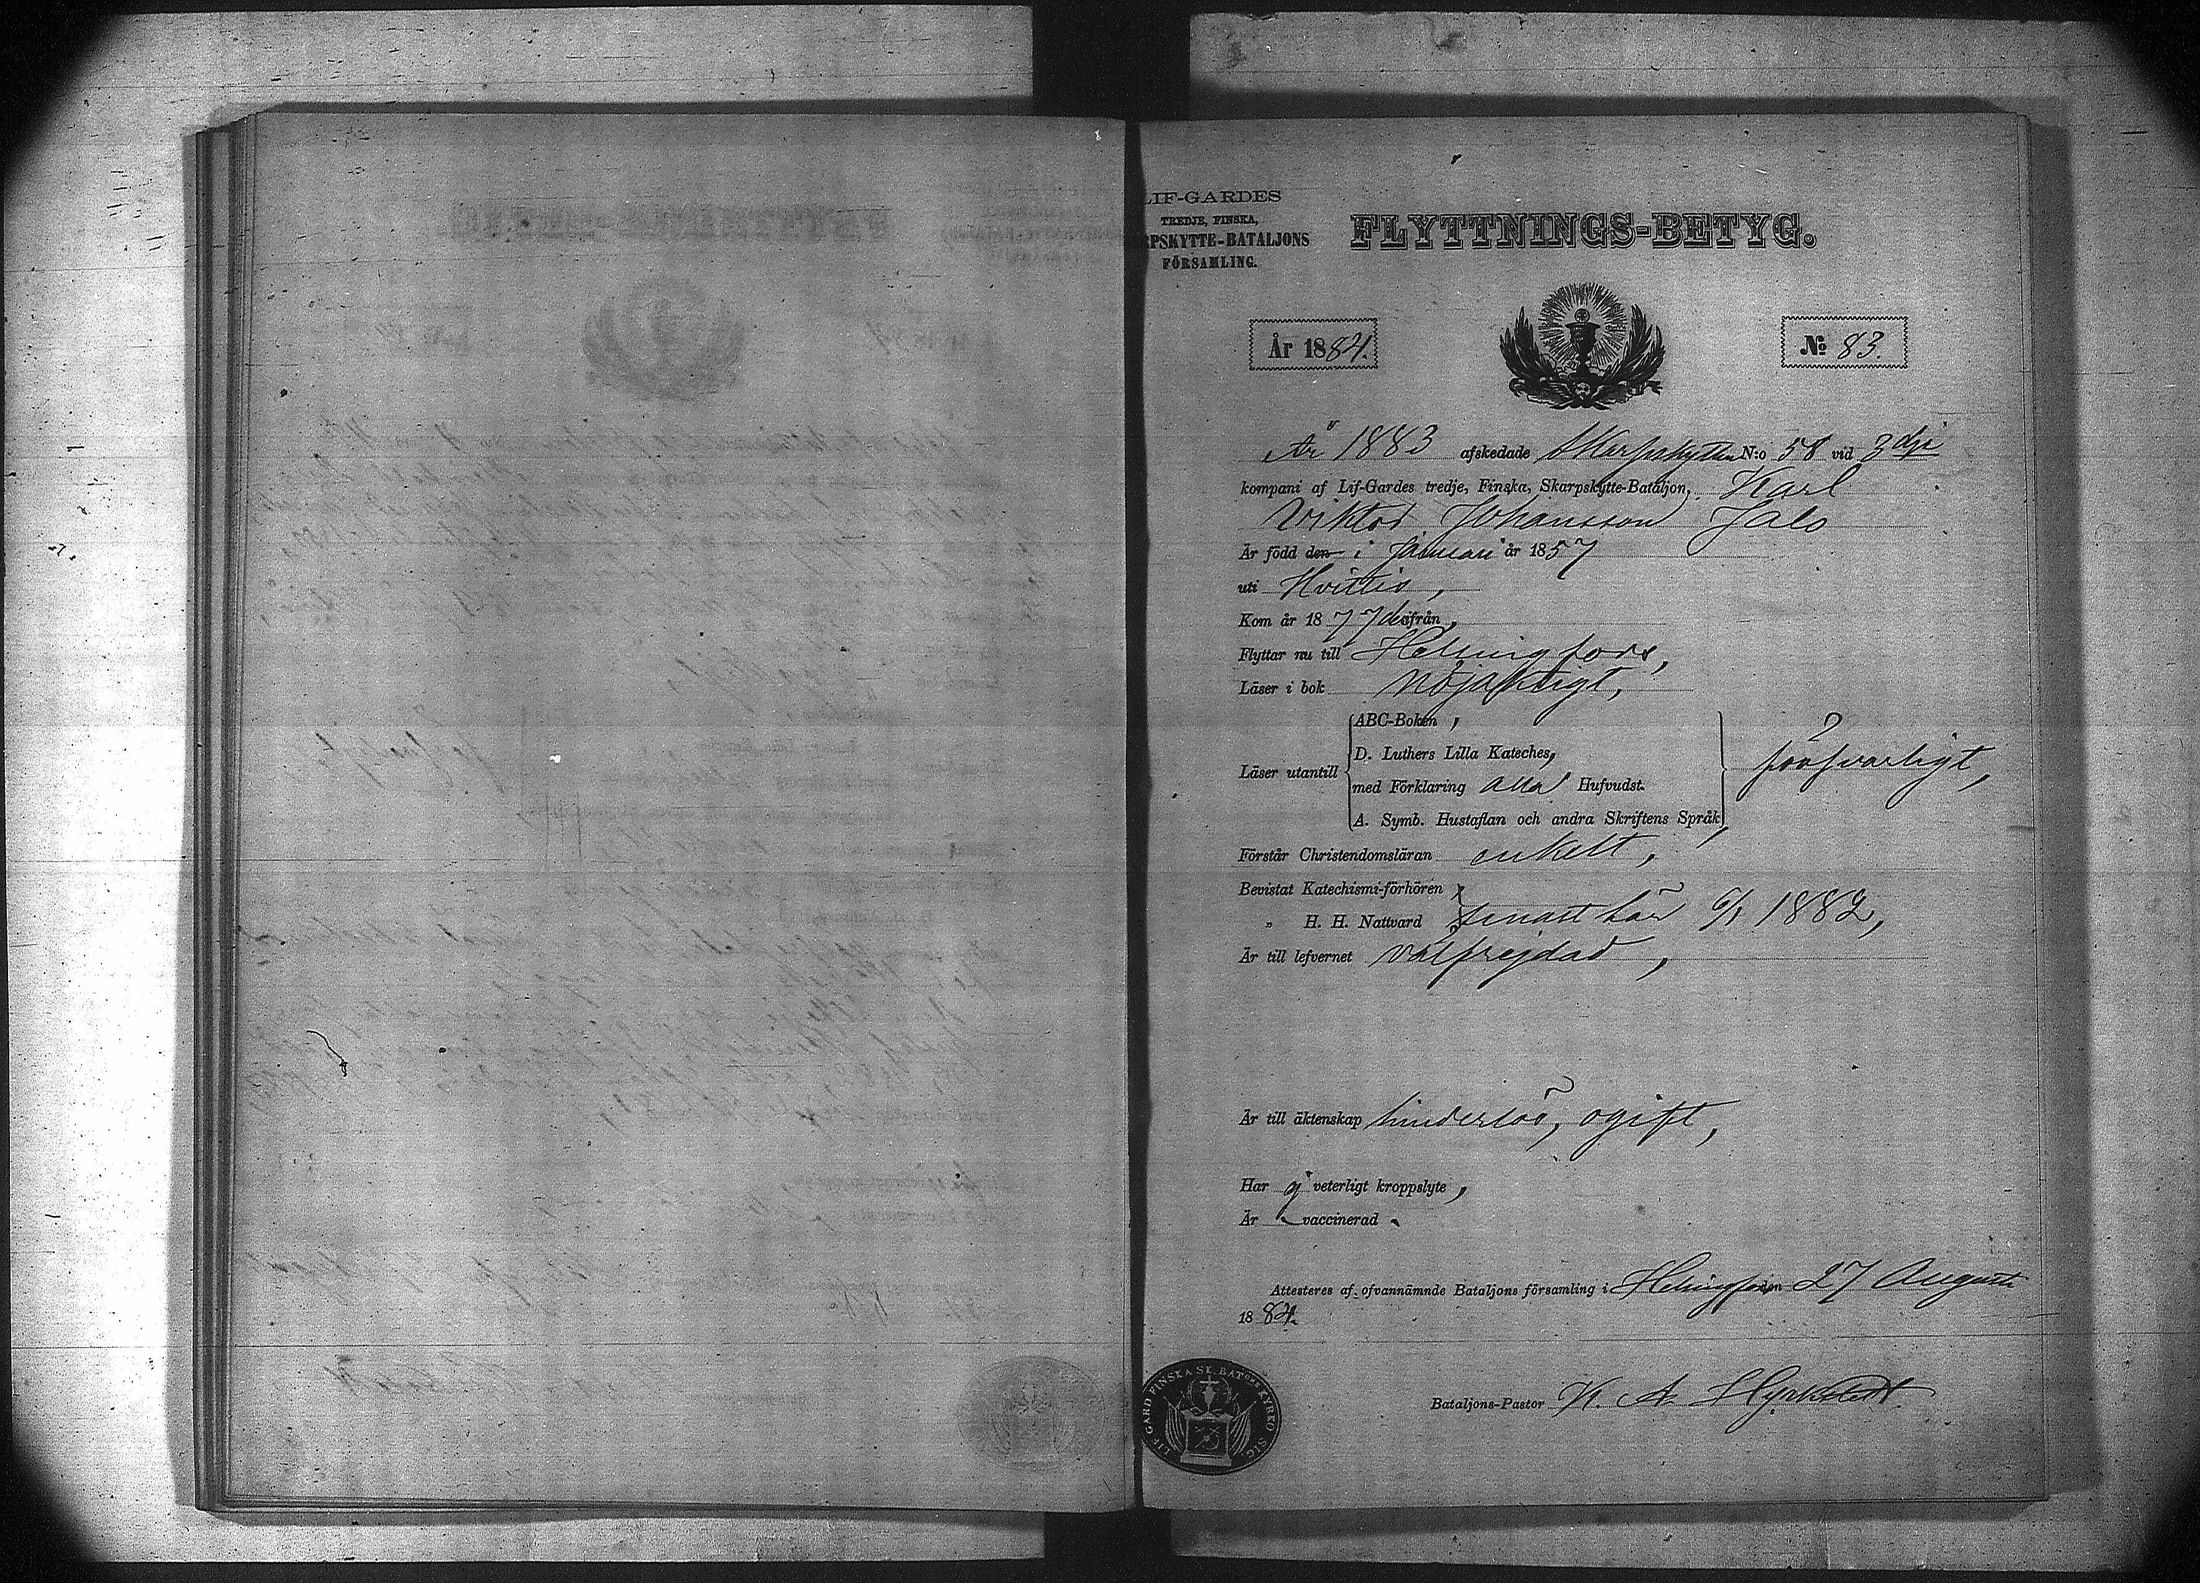 LIF-GARDES
TREDJE, FINSKA,
RPSKYTTE-BATALJONS
FÖRSAMLING.
FLYTTNINGS-BETYG.
År 1884.
No 83.
År 1883 afskedade Skarpskytten N:o 58 vid 3dje
kompani af Lif-Gardes tredje, Finska, Skarpskytte-Bataljon, Karl
Viktor Johansson Jalo
Är född den i Januari år 1857
uti Hvittis,
Kom år 1877 därifrån,
Flyttar nu till Helsingfors,
Läser i bok nöjaktigt,
Läser utantill
ABC-Boken,
D. Luthers Lilla Kateches,
med Förklaring alla Hufvudst.
A. Symb. Hustaflan och andra Skriftens Språk,
försvarligt,
Förstår Christendomsläran enkelt,
Bevistat Katechismi-förhören,
„ H. H. Nattvard senast här 6/1 1882,
Är till lefvernet välfrejdad,
Är till äktenskap hinderlös, ogift,
Har ej veterligt kroppslyte,
Är vaccinerad.
Attesteres af ofvannämnde Bataljons församling i Helsingfors den 27 Augusti
1884.
Bataljons-Pastor K. A. Hyrkstedt.
LIF GARD FINSKA SK. BATONS KYRKO SIG.